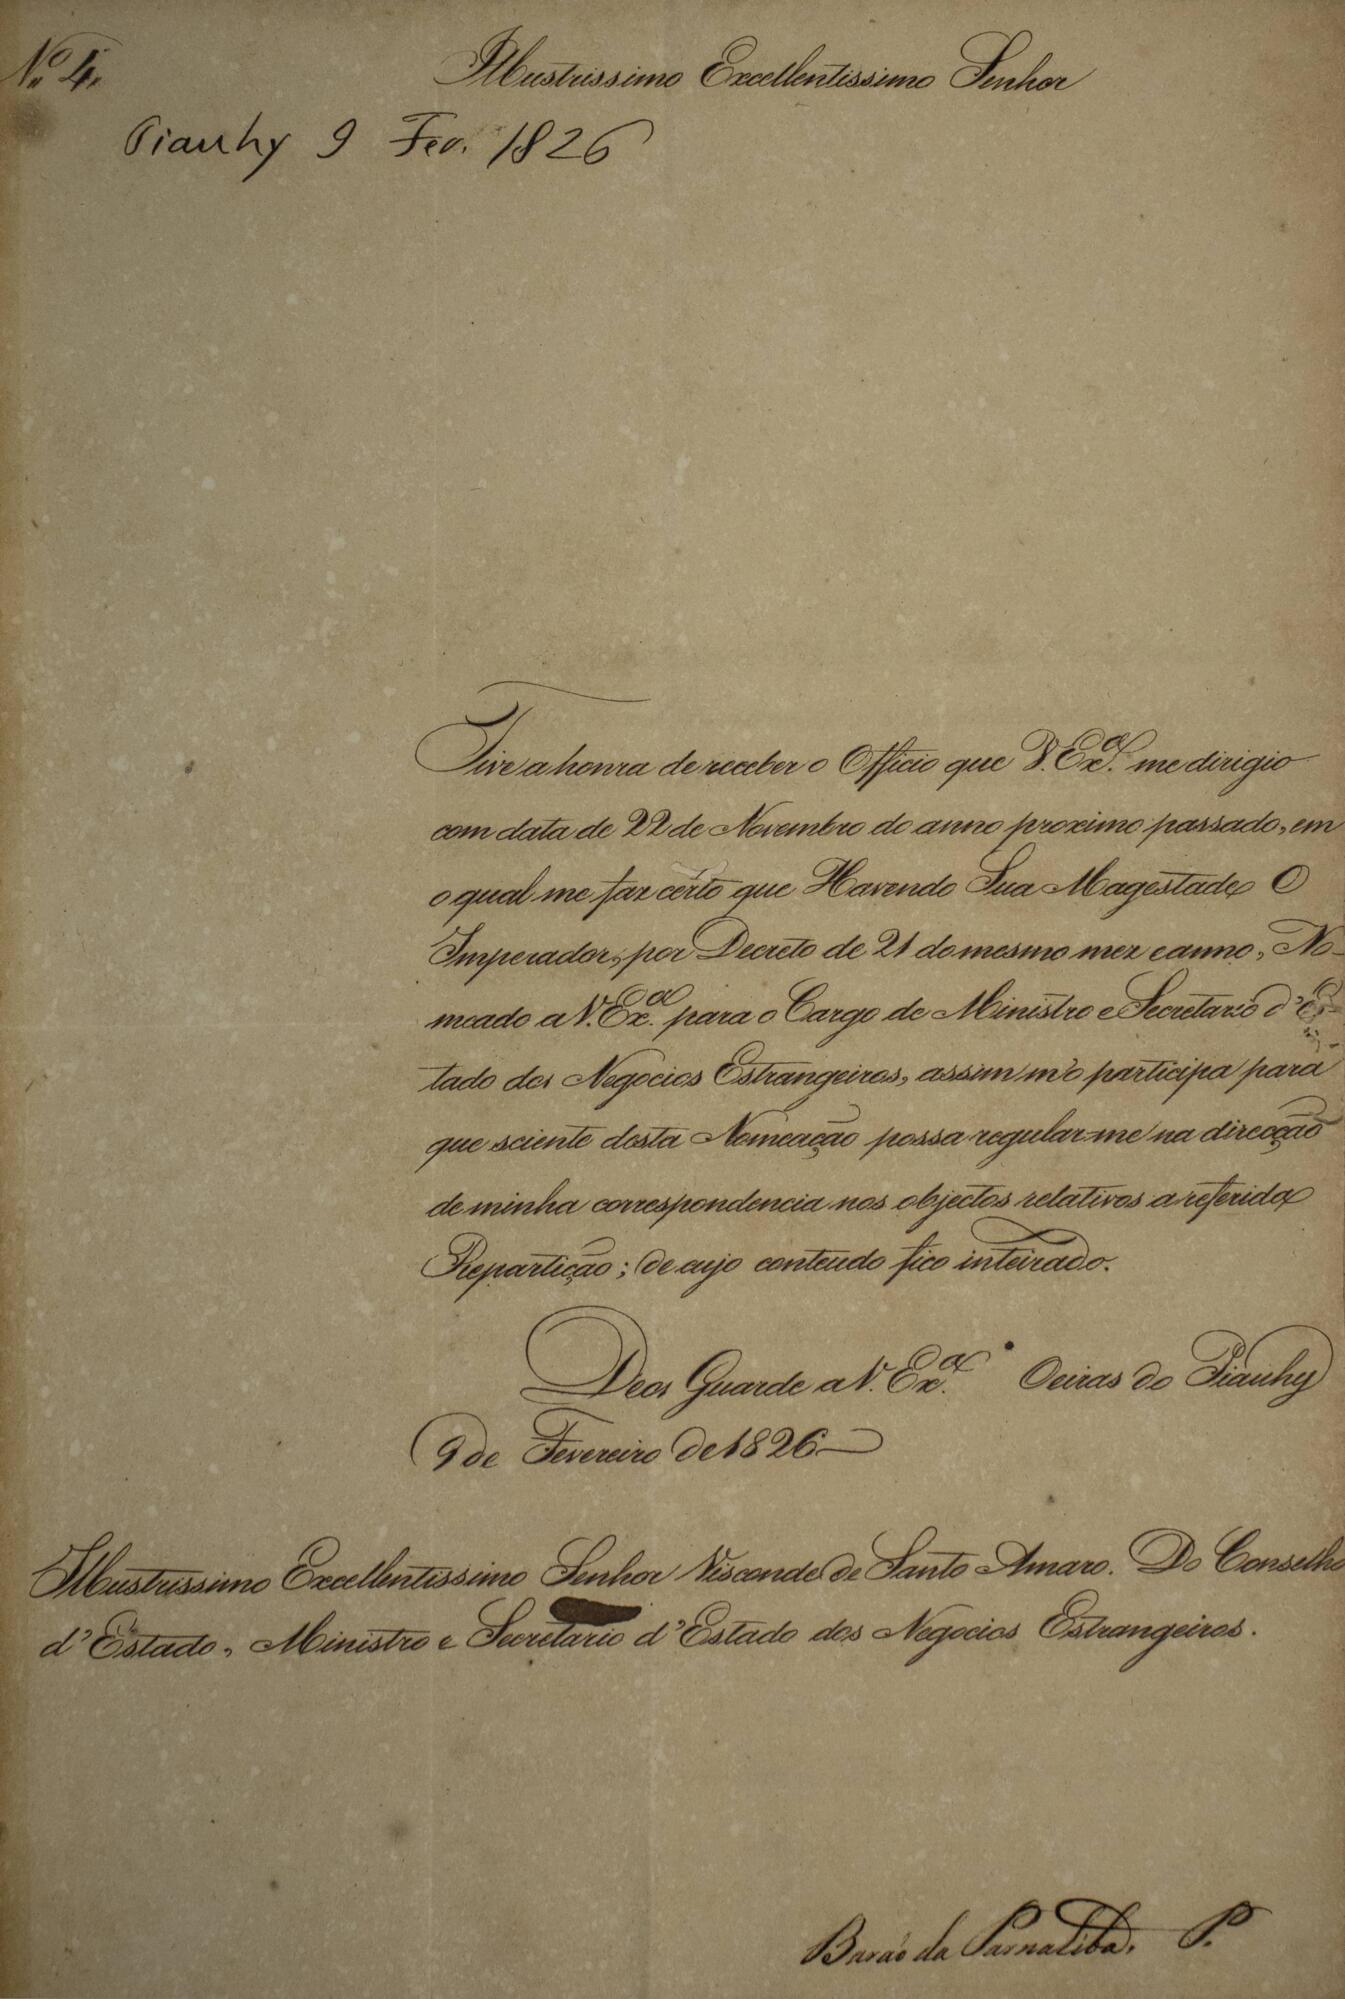 N.º 4.
Illustrissimo Excellentissimo Senhor
Piauhy 9 Fev. 1826
Tive a honra de receber o Officio que V. Ex.ª me dirigio
com data de 22 de Novembro do anno proximo passado, em
o qual me faz certo que Havendo Sua Magestade O
Imperador, por Decreto de 21 do mesmo mez e anno, No-
meado a V. Ex.ª para o Cargo de Ministro e Secretario d'Es-
tado dos Negocios Estrangeiros, assim m'o participa para
que sciente desta Nomeação possa regular-me na direcção
de minha correspondencia nos objectos relativos a referida
Repartição; de cujo conteudo fico inteirado.
Deos Guarde a V. Ex.ª Oeiras do Piauhy
9 de Fevereiro de 1826
Illustrissimo Excellentissimo Senhor Visconde de Santo Amaro. Do Conselho
d'Estado, Ministro e Secretario d'Estado dos Negocios Estrangeiros.
Barão da Parnahiba, P.